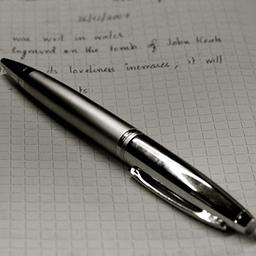 26/12/2007
was writ in water
Engraved on the tomb of John Keats
its loveliness increases, it will